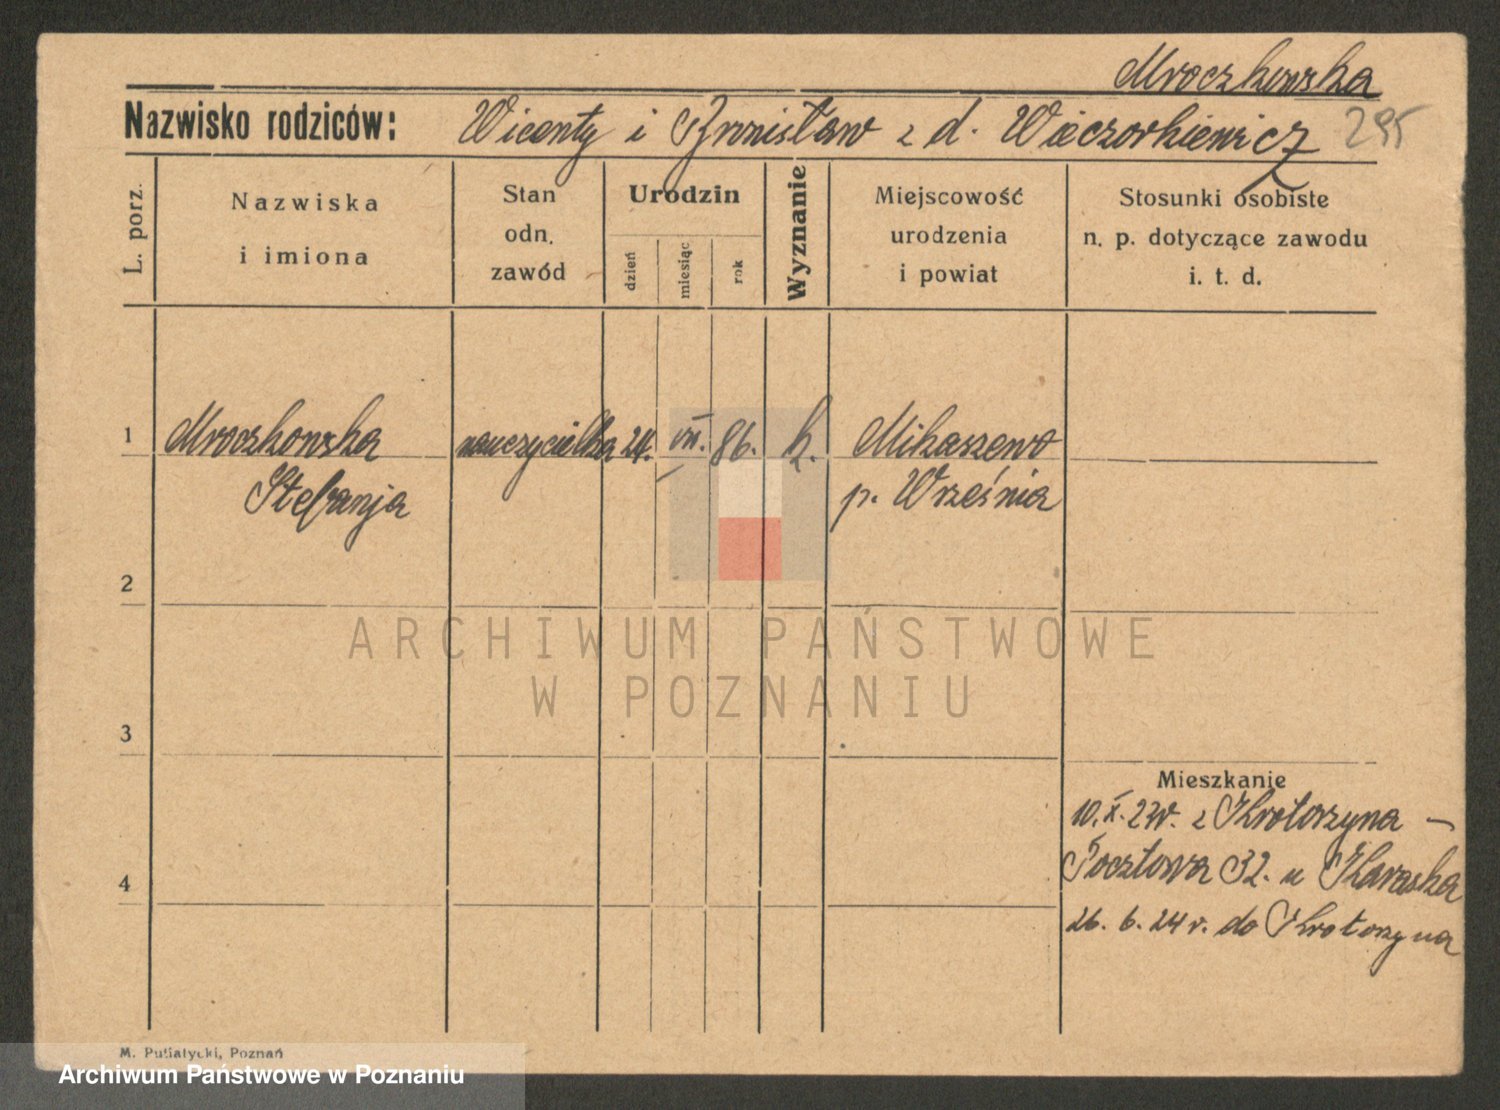 Mroczkowska
Nazwisko rodziców: Wicenty i Bronisław z d. Wieczorkiewicz 295
L. porz.
Nazwiska
i imiona
Stan
odn.
zawód
Urodzin
dzień
miesiąc
rok
Wyznanie
Miejscowość
urodzenia
i powiat
Stosunki osobiste
n. p. dotyczące zawodu
i. t. d.
1 Mroczkowska nauczycielka 24. VII. 86. k. Mikaszewo
Stefanja p. Września
2
ARCHIWUM PAŃSTWOWE
W POZNANIU
3
Mieszkanie
10. X. 23r. z Krotoszyna –
Pocztowa 32. u Karaska
4
26. 6. 24 r. do Krotoszyna
M. Putiatycki, Poznań
Archiwum Państwowe w Poznaniu